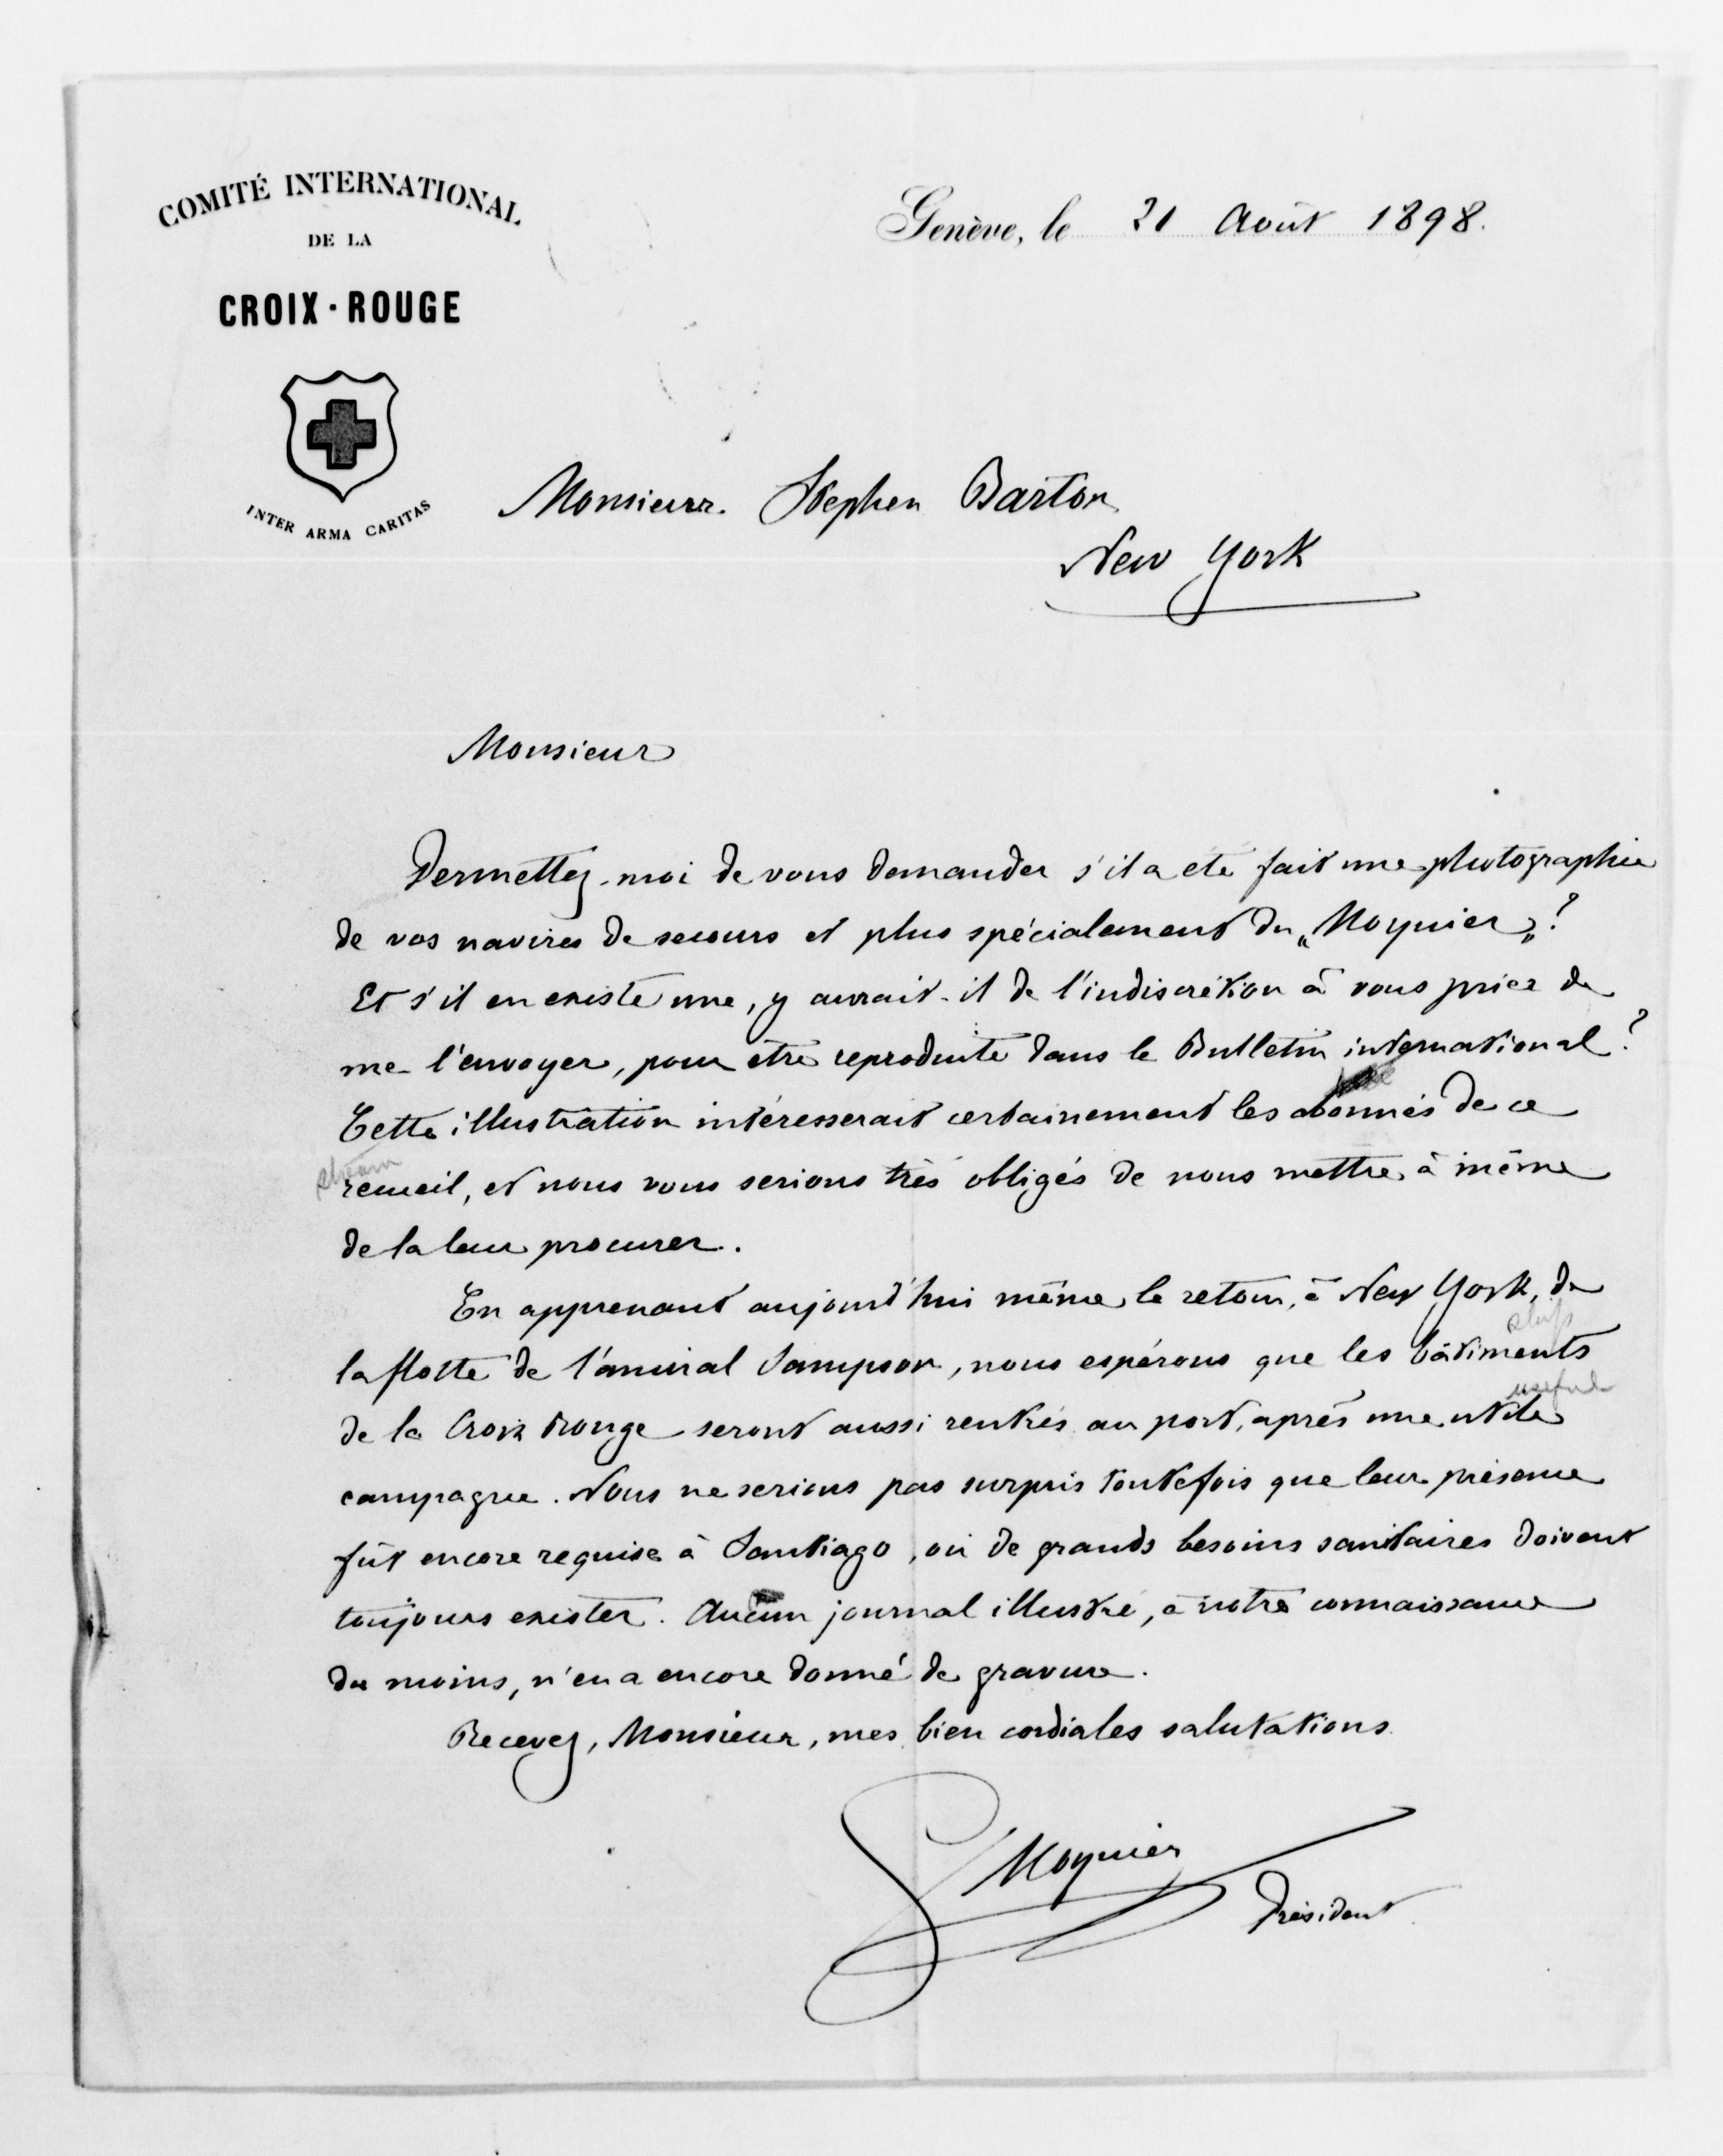 COMITÉ INTERNATIONAL
DE LA
CROIX-ROUGE
INTER ARMA CARITAS
Genève, le 21 Août 1898.
Monsieur. Stephen Barton
New York
Monsieur
Permettez-moi de vous demander s'il a été fait une photographie
de vos navires de secours et plus spécialement du „Moynier„?
Et s'il en existe une, y aurait-il de l'indiscrétion à vous prier de
me l'envoyer, pour être reproduite dans le Bulletin international?
Cette illustration intéresserait certainement les abonnés de ce
recueil, et nous vous serions très obligés de nous mettre à même
de la leur procurer.
En apprenant aujourd'hui même le retour, à New York, de
ships
la flotte de l'amiral Sampson, nous espérons que les bâtiments
useful
de la Croix Rouge seront aussi rentrés au port, après une utile
campagne. Nous ne serions pas surpris toutefois que leur présence
fût encore requise à Santiago, où de grands besoins sanitaires doivent
toujours exister. Aucun journal illustré, à notre connaissance
du moins, n'en a encore donné de gravure.
Recevez, Monsieur, mes bien cordiales salutations.
G Moynier
Président